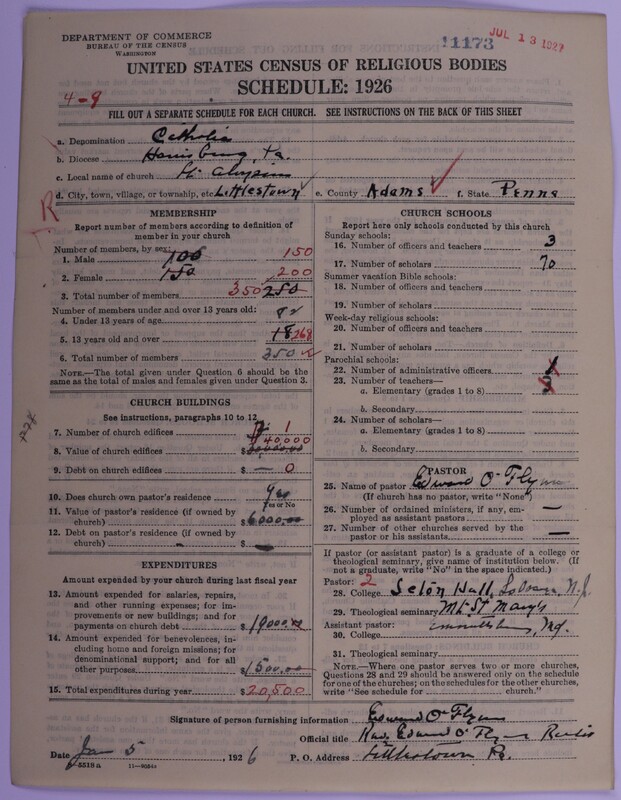 DEPARTMENT OF COMMERCE
BUREAU OF THE CENSUS
WASHINGTON
11173
JUL 13 1927
UNITED STATES CENSUS OF RELIGIOUS BODIES
SCHEDULE: 1926
4-9
FILL OUT A SEPARATE SCHEDULE FOR EACH CHURCH. SEE INSTRUCTIONS ON THE BACK OF THIS SHEET
a. Denomination Catholic
b. Diocese Harrisburg, Pa.
c. Local name of church St Aloysius
d. City, town, village, or township, etc. Littlestown e. County Adams f. State Penna
R
MEMBERSHIP
Report number of members according to definition of member in your church
Number of members, by sex:
1. Male 100 150
2. Female 150 200
3. Total number of members 350 250
Number of members under and over 13 years old:
4. Under 13 years of age 82
5. 13 years old and over 268
6. Total number of members 350
NOTE.—The total given under Question 6 should be the same as the total of males and females given under Question 3.
CHURCH BUILDINGS
See instructions, paragraphs 10 to 12
7. Number of church edifices 1
8. Value of church edifices $ 40,000
9. Debt on church edifices $ — 0
10. Does church own pastor's residence Yes
Yes or No
11. Value of pastor's residence (if owned by church) $ 6000.00
12. Debt on pastor's residence (if owned by church) $ —
EXPENDITURES
Amount expended by your church during last fiscal year
13. Amount expended for salaries, repairs, and other running expenses; for improvements or new buildings; and for payments on church debt $ 19000.00
14. Amount expended for benevolences, including home and foreign missions; for denominational support; and for all other purposes $ 1500.00
15. Total expenditures during year $ 20,500
CHURCH SCHOOLS
Report here only schools conducted by this church
Sunday schools:
16. Number of officers and teachers 3
17. Number of scholars 70
Summer vacation Bible schools:
18. Number of officers and teachers
19. Number of scholars
Week-day religious schools:
20. Number of officers and teachers
21. Number of scholars
Parochial schools:
22. Number of administrative officers
23. Number of teachers—
a. Elementary (grades 1 to 8)
b. Secondary
24. Number of scholars—
a. Elementary (grades 1 to 8)
b. Secondary
PASTOR
25. Name of pastor Edward O'Flynn
(If church has no pastor, write "None")
26. Number of ordained ministers, if any, employed as assistant pastors —
27. Number of other churches served by the pastor or his assistants —
If pastor (or assistant pastor) is a graduate of a college or theological seminary, give name of institution below. (If not a graduate, write "No" in the space indicated.)
Pastor: 2
28. College Seton Hall, N.J.
29. Theological seminary Mt. St Mary's
Assistant pastor: Emmitsburg, Md.
30. College
31. Theological seminary
NOTE.—Where one pastor serves two or more churches, Questions 28 and 29 should be answered only on the schedule for one of the churches; on the schedules for the other churches, write "See schedule for church."
Signature of person furnishing information Edward O'Flynn
Official title Rev. Edward O'Flynn Rector
Date Jan 5, 1926 P. O. Address Littlestown Pa.